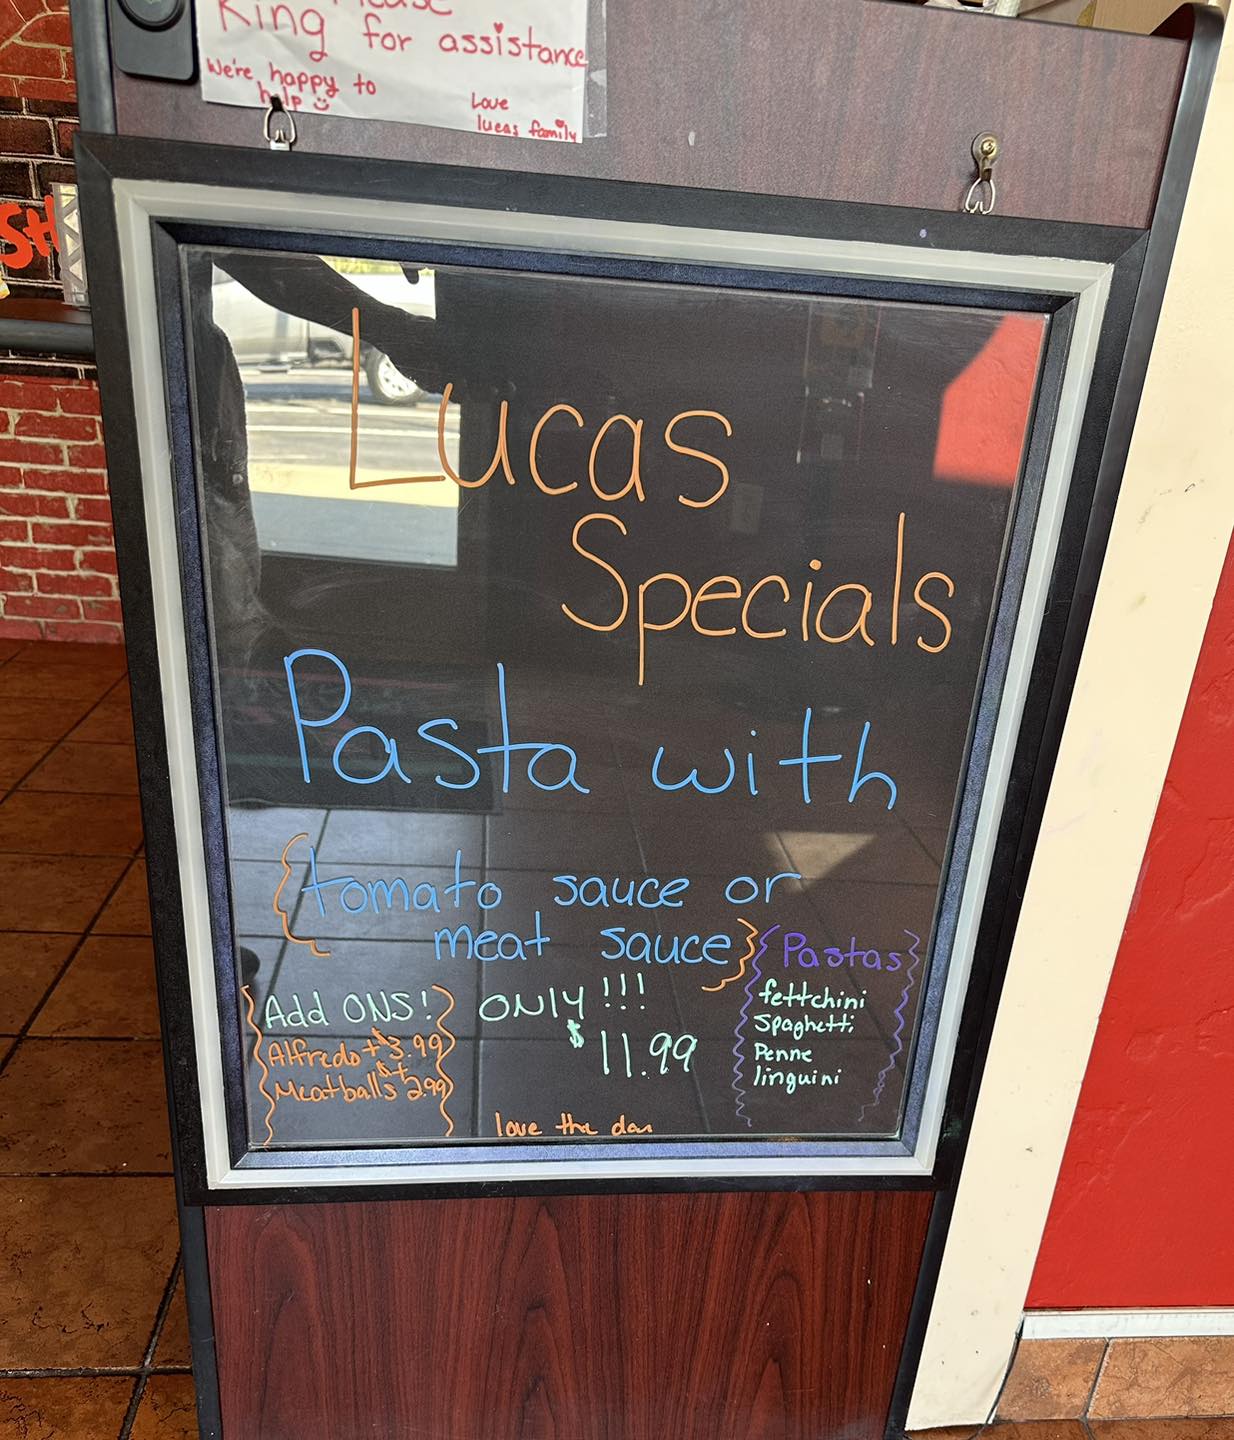 Ring for assistance
We're happy to
help
Love
lucas family
Lucas
Specials
Pasta with
tomato sauce or
meat sauce
Add ONS!
Alfredo +$3.99
Meatballs $+2.99
ONLY !!!
$11.99
Pastas
fettchini
Spaghetti
Penne
linguini
love the